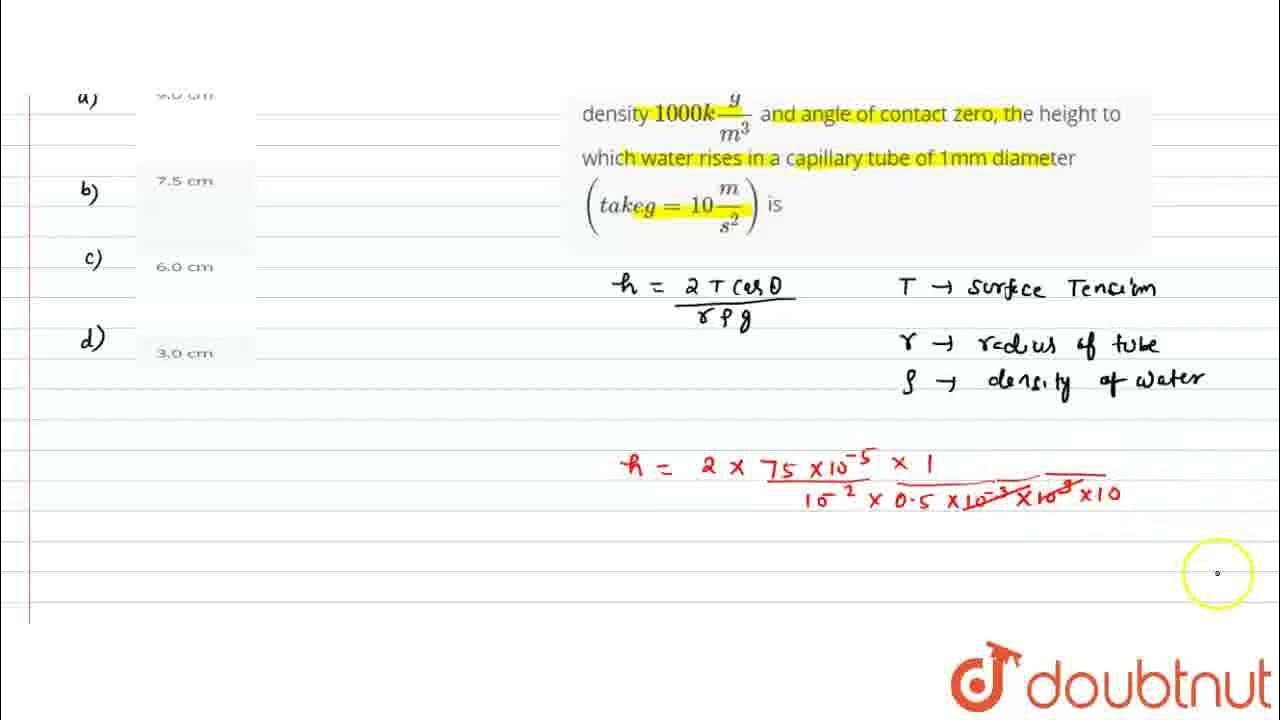 a) 9.0 cm
density 1000k g/m³ and angle of contact zero, the height to
which water rises in a capillary tube of 1mm diameter
(takeg = 10 m/s²) is
b) 7.5 cm
c) 6.0 cm
d) 3.0 cm
h = 2 T Cos θ / r ρ g
T → Surface Tension
r → radius of tube
ρ → density of water
h = 2 × 75 × 10⁻⁵ × 1 / 10⁻² × 0.5 × 10⁻³ × 10³ × 10
doubtnut